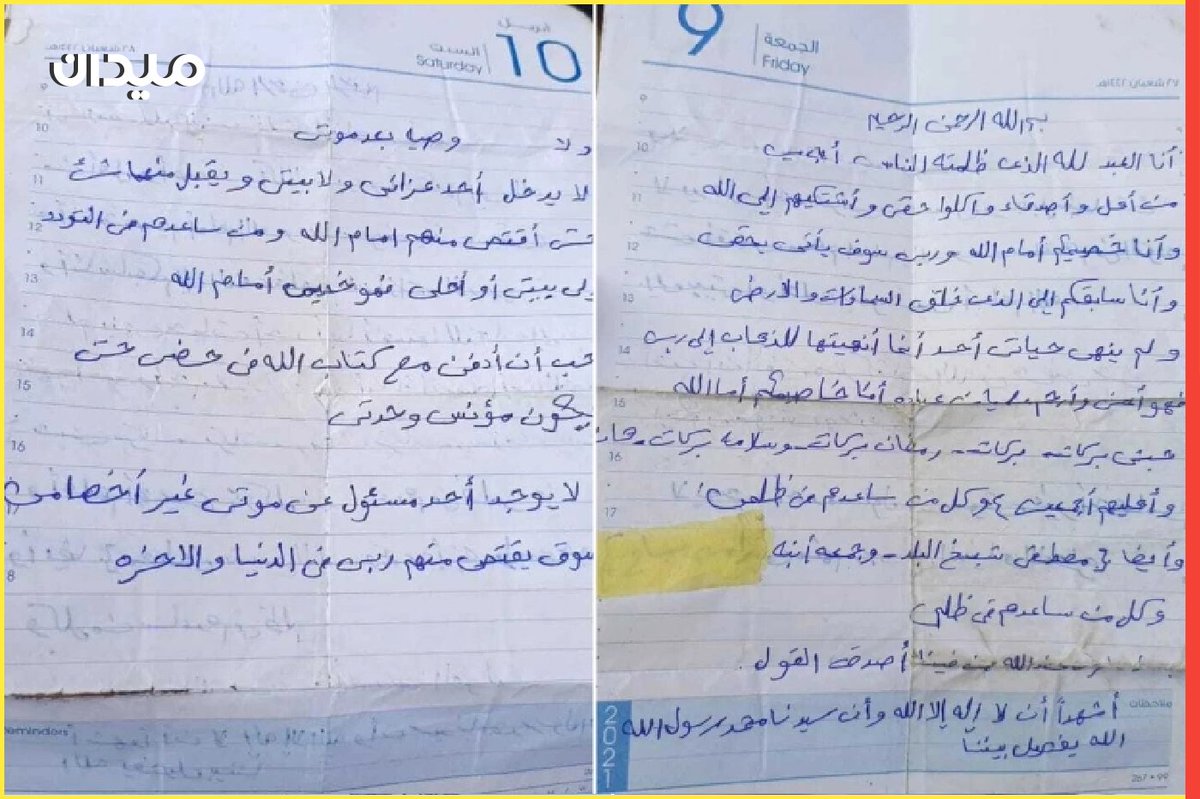 9
الجمعة
Friday
٢٧ شعبان ١٤٤٢هـ
بسم الله الرحمن الرحيم
أنا العبد لله الذى ظلمته الناس
من أهل وأصدقاء وأكلوا حقى وأشتكيهم إلى الله
وأنا خصيمكم أمام الله وربى سوف يأتى بحقى
وأنا سابقكم إلى الذى خلق السماوات والأرض
ولم ينهى حياتى أحد أنما أنهيتها للذهاب إلى ربى
فهو أحن وأرحم عباده أنا خاصيمكم أما الله
بركات - رمضان بركات - وسلامه بركات
وأهليهم أجمعين وكل من ساعدهم فى ظلمى
وأيضا مصطفى شيخ البلد - وجمعه أبنه
وكل من ساعدهم فى ظلمى
الله أصدق القول
ملاحظات
أشهداً أن لا إله إلا الله وأن سيدنا محمد رسول الله
الله يفصل بيننا
2021
267 • 99
ميدان
10
أبريل
السبت
Saturday
٢٨ شعبان ١٤٤٢هـ
ولا وصيا بعد موتى
لا يدخل أحد عزائى ولا بيتى ويقبل منها شئ
حتى أقتص منهم امام الله ومن ساعدهم فى التودد
إلى بيتى أو أهلى فهو الله
أدفن مع كتاب الله فى حضى حتى
يكون مؤنس وحدتى
لا يوجد أحد مسئول عن موتى غير أخصامى
سوف يقتص منهم ربى فى الدنيا والاخره
Reminders